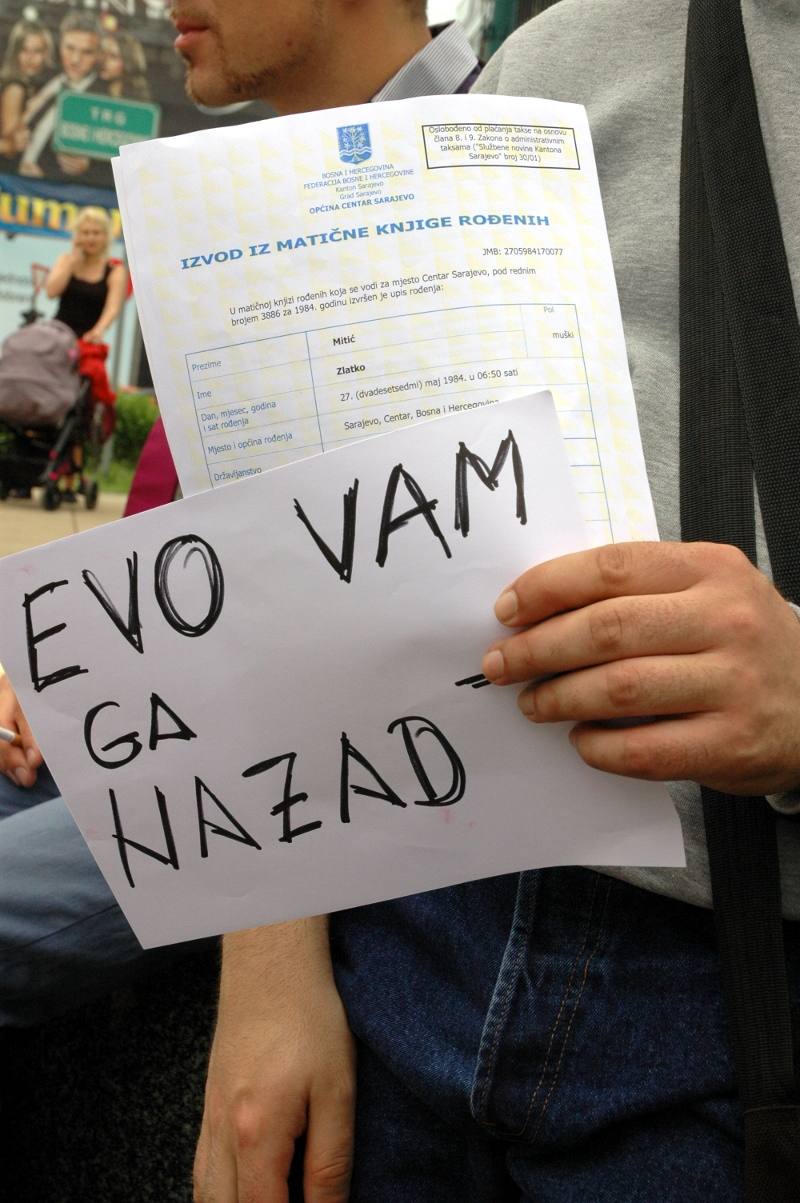 TRG
Oslobođeno od plaćanja takse na osnovu
člana 8. i 9. Zakona o administrativnim
taksama ("Službene novine Kantona
Sarajevo" broj 30/01)
BOSNA I HERCEGOVINA
FEDERACIJA BOSNE I HERCEGOVINE
Kanton Sarajevo
Grad Sarajevo
OPĆINA CENTAR SARAJEVO
IZVOD IZ MATIČNE KNJIGE ROĐENIH
JMB: 2705984170077
U matičnoj knjizi rođenih koja se vodi za mjesto Centar Sarajevo, pod rednim
brojem 3886 za 1984. godinu izvršen je upis rođenja:
Prezime Mitić Pol
Ime Zlatko muški
Dan, mjesec, godina
i sat rođenja 27. (dvadesetsedmi) maj 1984. u 06:50 sati
Mjesto i općina rođenja Sarajevo, Centar, Bosna i Hercegovina
Državljanstvo
EVO VAM
GA
NAZAD